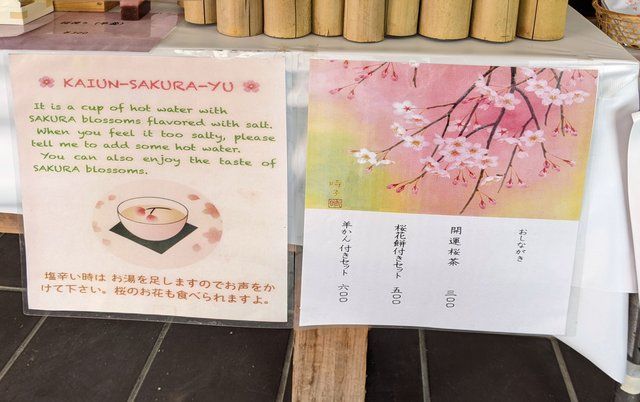 KAIUN-SAKURA-YU
It is a cup of hot water with
SAKURA blossoms flavored with salt.
When you feel it too salty, please
tell me to add some hot water.
You can also enjoy the taste of
SAKURA blossoms.
塩辛い時は お湯を足しますのでお声をか
けて下さい。桜のお花も食べられますよ。
おしながき
開運桜茶 三〇〇
桜花餅付きセット 五〇〇
羊かん付きセット 六〇〇